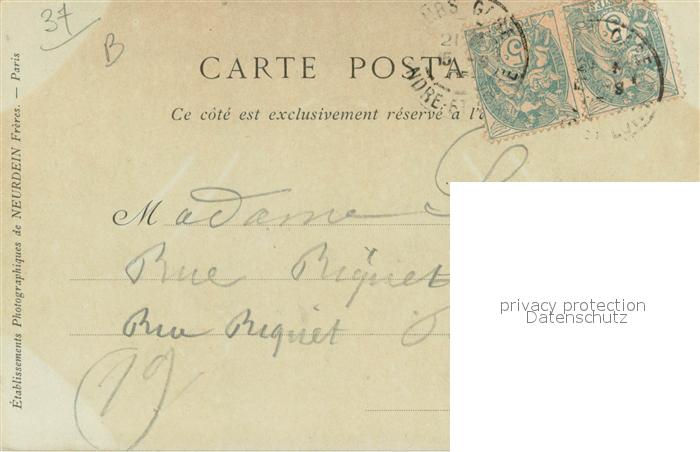 37
B
CARTE POSTA
Ce côté est exclusivement réservé à l'a
Madame
Rue Riquet
Rue Riquet
19
Établissements Photographiques de NEURDEIN Frères. — Paris
privacy protection
Datenschutz